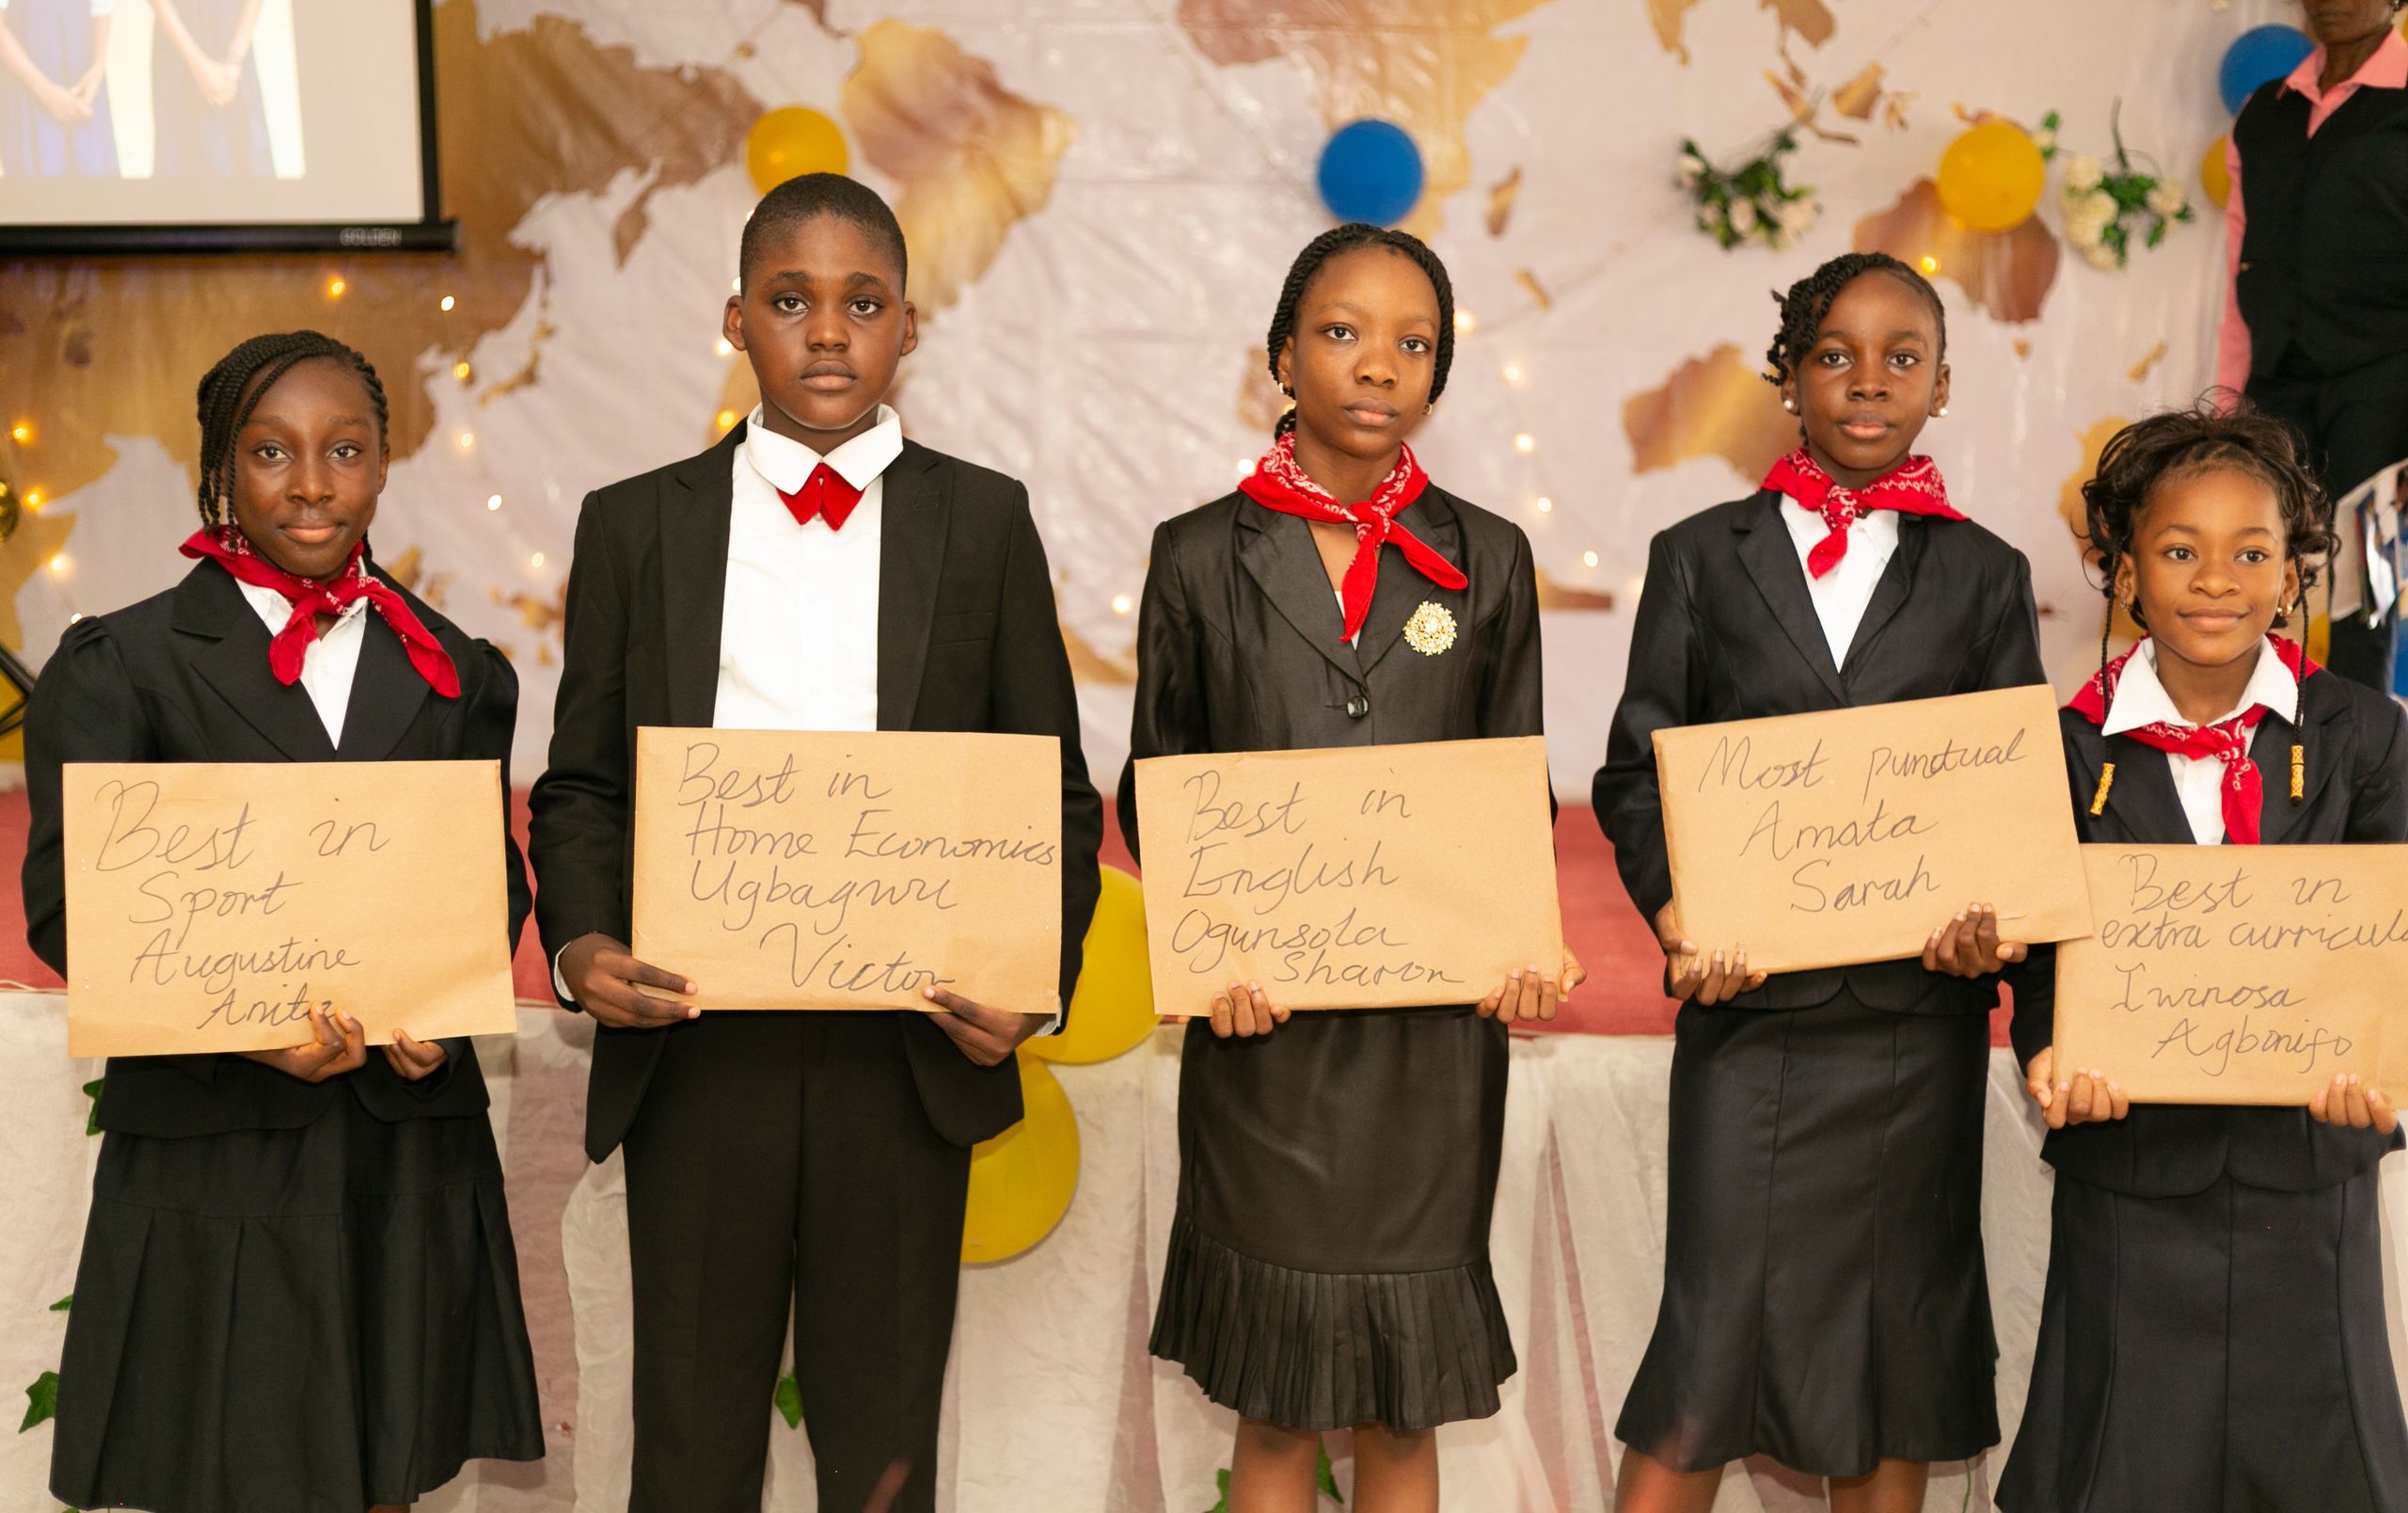 GOLDEN
Best in
Sport
Augustine
Anita
Best in
Home Economics
Ugbagwu
Victor
Best in
English
Ogunsola
Sharon
Most punctual
Amata
Sarah
Best in
extra curricula
Iwinosa
Agbonifo